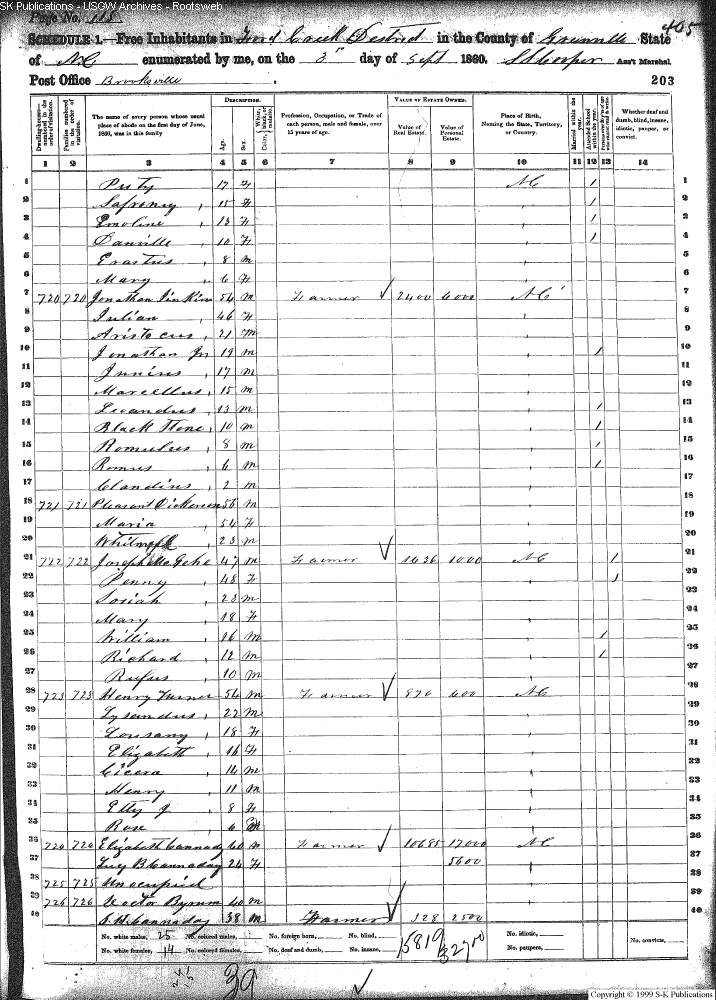 SK Publications - USGW Archives - Rootsweb
Page No. 118
405
SCHEDULE 1.—Free Inhabitants in Ford Creek District in the County of Granville State
of NC enumerated by me, on the 3" day of Sept 1860. Ass't Marshal
Post Office Brooksville 203
Dwelling-houses—numbered in the order of visitation.
Families numbered in the order of visitation.
The name of every person whose usual place of abode on the first day of June, 1860, was in this family
DESCRIPTION.
Age.
Sex.
Color, White, black, or mulatto.
Profession, Occupation, or Trade of each person, male and female, over 15 years of age.
VALUE OF ESTATE OWNED.
Value of Real Estate.
Value of Personal Estate.
Place of Birth, Naming the State, Territory, or Country.
Married within the year.
Attended School within the year.
Whether deaf and dumb, blind, insane, idiotic, pauper, or convict.
1 2 3 4 5 6 7 8 9 10 11 12 13 14
1 17 F NC / 1
2 15 F / 2
3 Emoline 13 F / 3
4 Danville 10 F / 4
5 Erastus 8 M 5
6 Mary 6 F 6
7 720 720 Jonathan Jinkins 54 M Farmer 2400 6000 NC 7
8 Julian 46 F 8
9 Aristocus 21 M 9
10 Jonathan Jr 19 M / 10
11 Junius 17 M 11
12 Marcellus 15 M 12
13 Leandus 13 M / 13
14 Black Stone 10 M / 14
15 Romulus 8 M / 15
16 Romus 6 M / 16
17 Claudius 2 M 17
18 721 721 Pleasant Dickerson 56 M 18
19 Maria 54 F 19
20 23 M 20
21 722 722 Joseph McGehe 47 M Farmer 1636 1000 NC / 21
22 Penny 48 F / 22
23 Josiah 23 M 23
24 Mary 18 F 24
25 William 16 M / 25
26 Richard 12 M / 26
27 Rufus 10 M 27
28 723 723 Henry Turner 54 M Farmer 870 600 NC 28
29 Lysandus 22 M 29
30 Lousany 18 F 30
31 Elizabeth 16 F 31
32 Cicero 14 M 32
33 Henry 11 M 33
34 Etty J 8 F 34
35 Rose 6 M 35
36 724 724 Elizabeth Cannady 60 M Farmer 10685 17000 NC 36
37 Lucy B Cannaday 24 F 5600 37
38 725 725 Unoccupied 38
39 726 726 Byrum 40 M 39
40 Cannaday 38 M Farmer 328 2500 40
No. white males, 25 No. colored males, No. foreign born, No. blind, 15819 32700 No. idiotic, No. convicts,
No. white females, 14 No. colored females, No. deaf and dumb, No. insane, No. paupers,
39
Copyright © 1999 S-K Publications